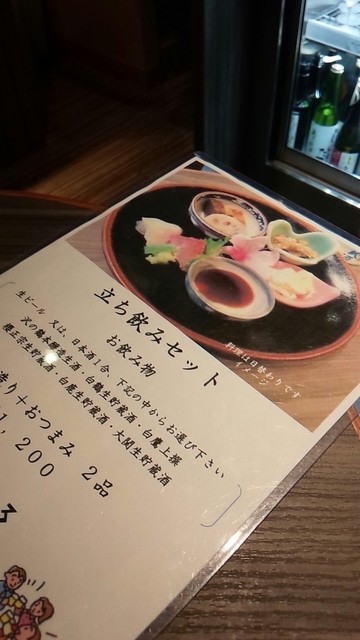 料理は日替わりです
イメージ
立ち飲みセット
お飲み物
生ビール 又は、日本酒1合、下記の中からお選び下さい
沢の鶴本醸造生酒・白鶴生貯蔵酒・白鷹上撰
櫻正宗生貯蔵酒・白鹿生貯蔵酒・大関生貯蔵酒
造り＋おつまみ 2品
1,200